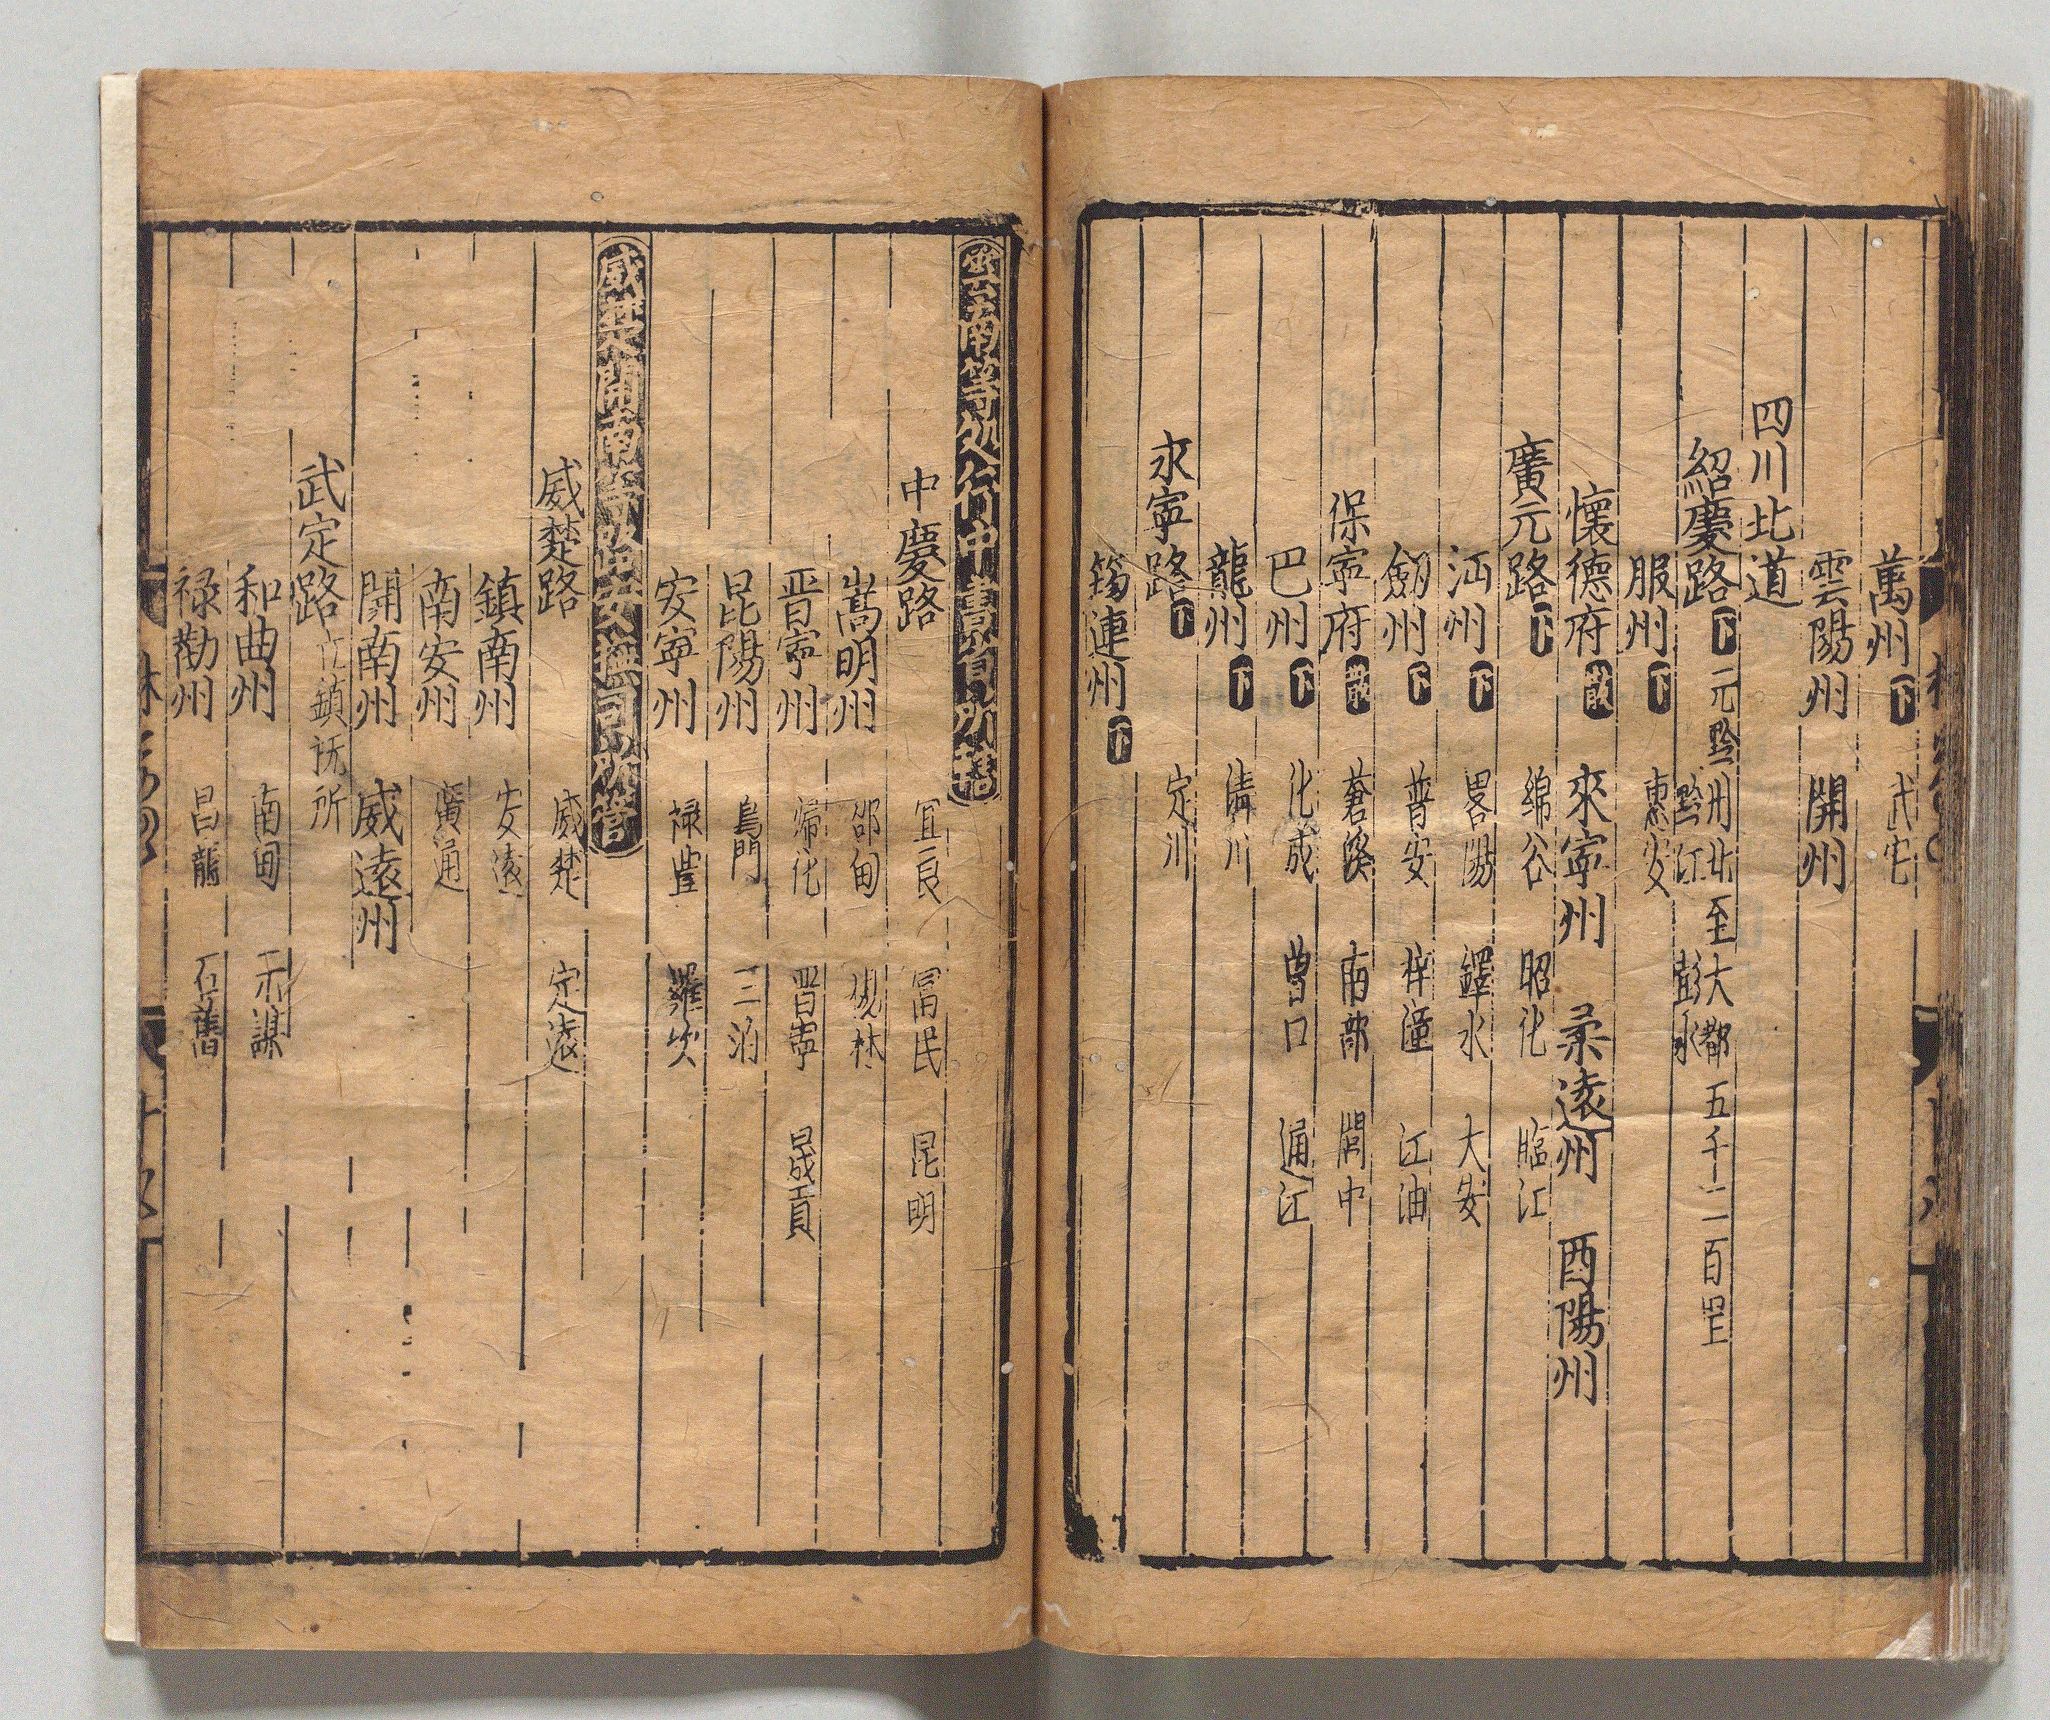 萬州 下 武宁
雲陽州 開州
四川北道
紹慶路 下 元黔州北至大都五千二百里 黔江 彭水
服州 下 惠安
懷德府 散 來寧州 柔遠州 酉陽州
廣元路 下 綿谷 昭化 臨江
沔州 下 畧陽 鐸水 大安
劒州 下 普安 梓潼 江油
保寧府 散 蒼溪 南部 閬中
巴州 下 化成 曽口 通江
龍州 下 清川
永寧路 下 定川
筠連州 下
雲南等処行中書省所轄
中慶路 宜良 冨民 昆明
嵩明州 邵甸 楊林
晋寧州 歸化 晋寧 晟貢
昆陽州 烏門 三泊
安寧州 禄豊 羅次
威楚開南等処安撫司所管
威楚路 威楚 定遠
鎮南州 安遠
南安州 廣通
開南州 威遠州
武定路 立鎮抚所
和曲州 南甸 示謀
禄勸州 昌龍 石舊